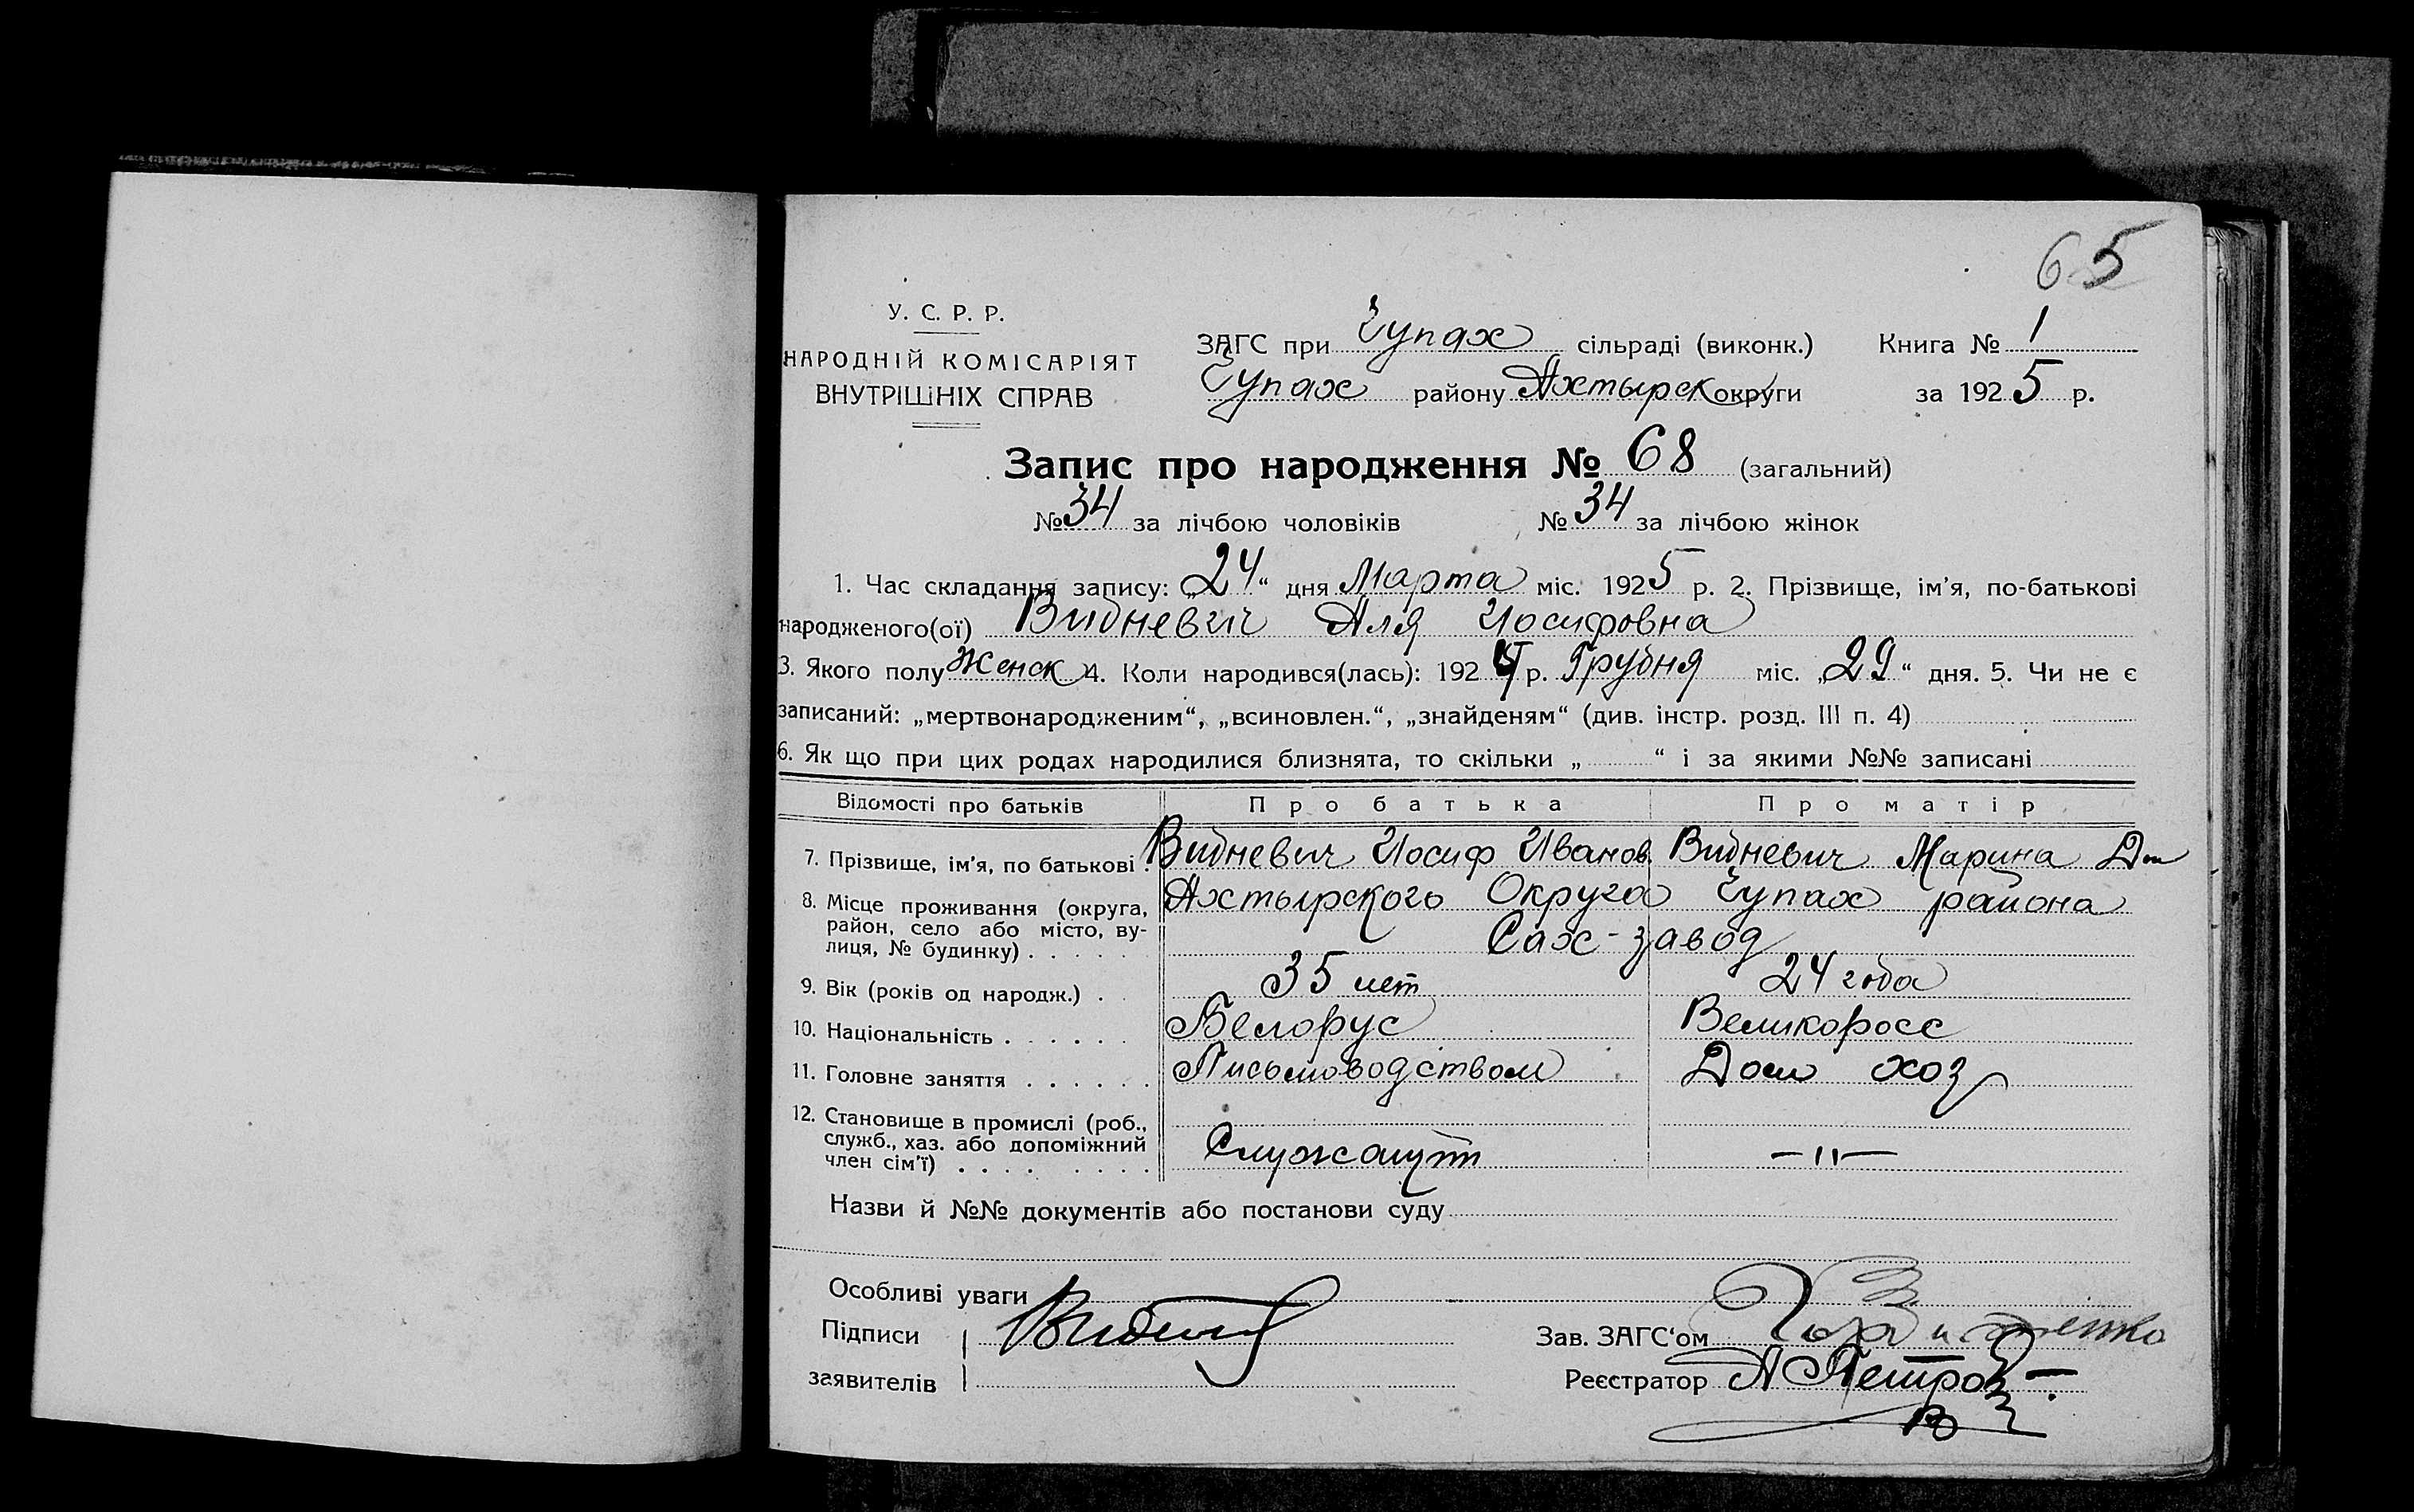 65
У. С. Р. Р.
НАРОДНІЙ КОМІСАРІЯТ
ВНУТРІШНІХ СПРАВ
ЗАГС при Чупах сільраді (виконк.) Книга № 1
Чупах району Ахтырск округи за 1925 р.
Запис про народження № 68 (загальний)
№ 34 за лічбою чоловіків № 34 за лічбою жінок
1. Час складання запису: „24“ дня Марта міс. 1925 р. 2. Прізвище, ім'я, по-батькові
народженого(ої) Видневич Аля Иосифовна
3. Якого полу Женск 4. Коли народився(лась): 1924 р. Грудня міс. „29“ дня. 5. Чи не є
записаний: „мертвонародженим“, „всиновлен.“, „знайденям“ (див. інстр. розд. III п. 4)
6. Як що при цих родах народилися близнята, то скільки „ “ і за якими №№ записані
Відомості про батьків Про батька Про матір
7. Прізвище, ім'я, по батькові . Видневич Иосиф Иванов. Видневич Марина
8. Місце проживання (округа, Ахтырского Округа Чупах района
район, село або місто, ву-
лиця, № будинку) . . . . . . Сах-завод
9. Вік (років од народж.) . . 35 лет 24 года
10. Національність . . . . . . Белорус Великоросс
11. Головне заняття . . . . . . Письмоводством Дом хоз
12. Становище в промислі (роб.,
служб., хаз. або допоміжний
член сім'ї) . . . . . . . . Служащий —"—
Назви й №№ документів або постанови суду
Особливі уваги
Підписи
Зав. ЗАГС'ом
заявителів
Реєстратор А Петров